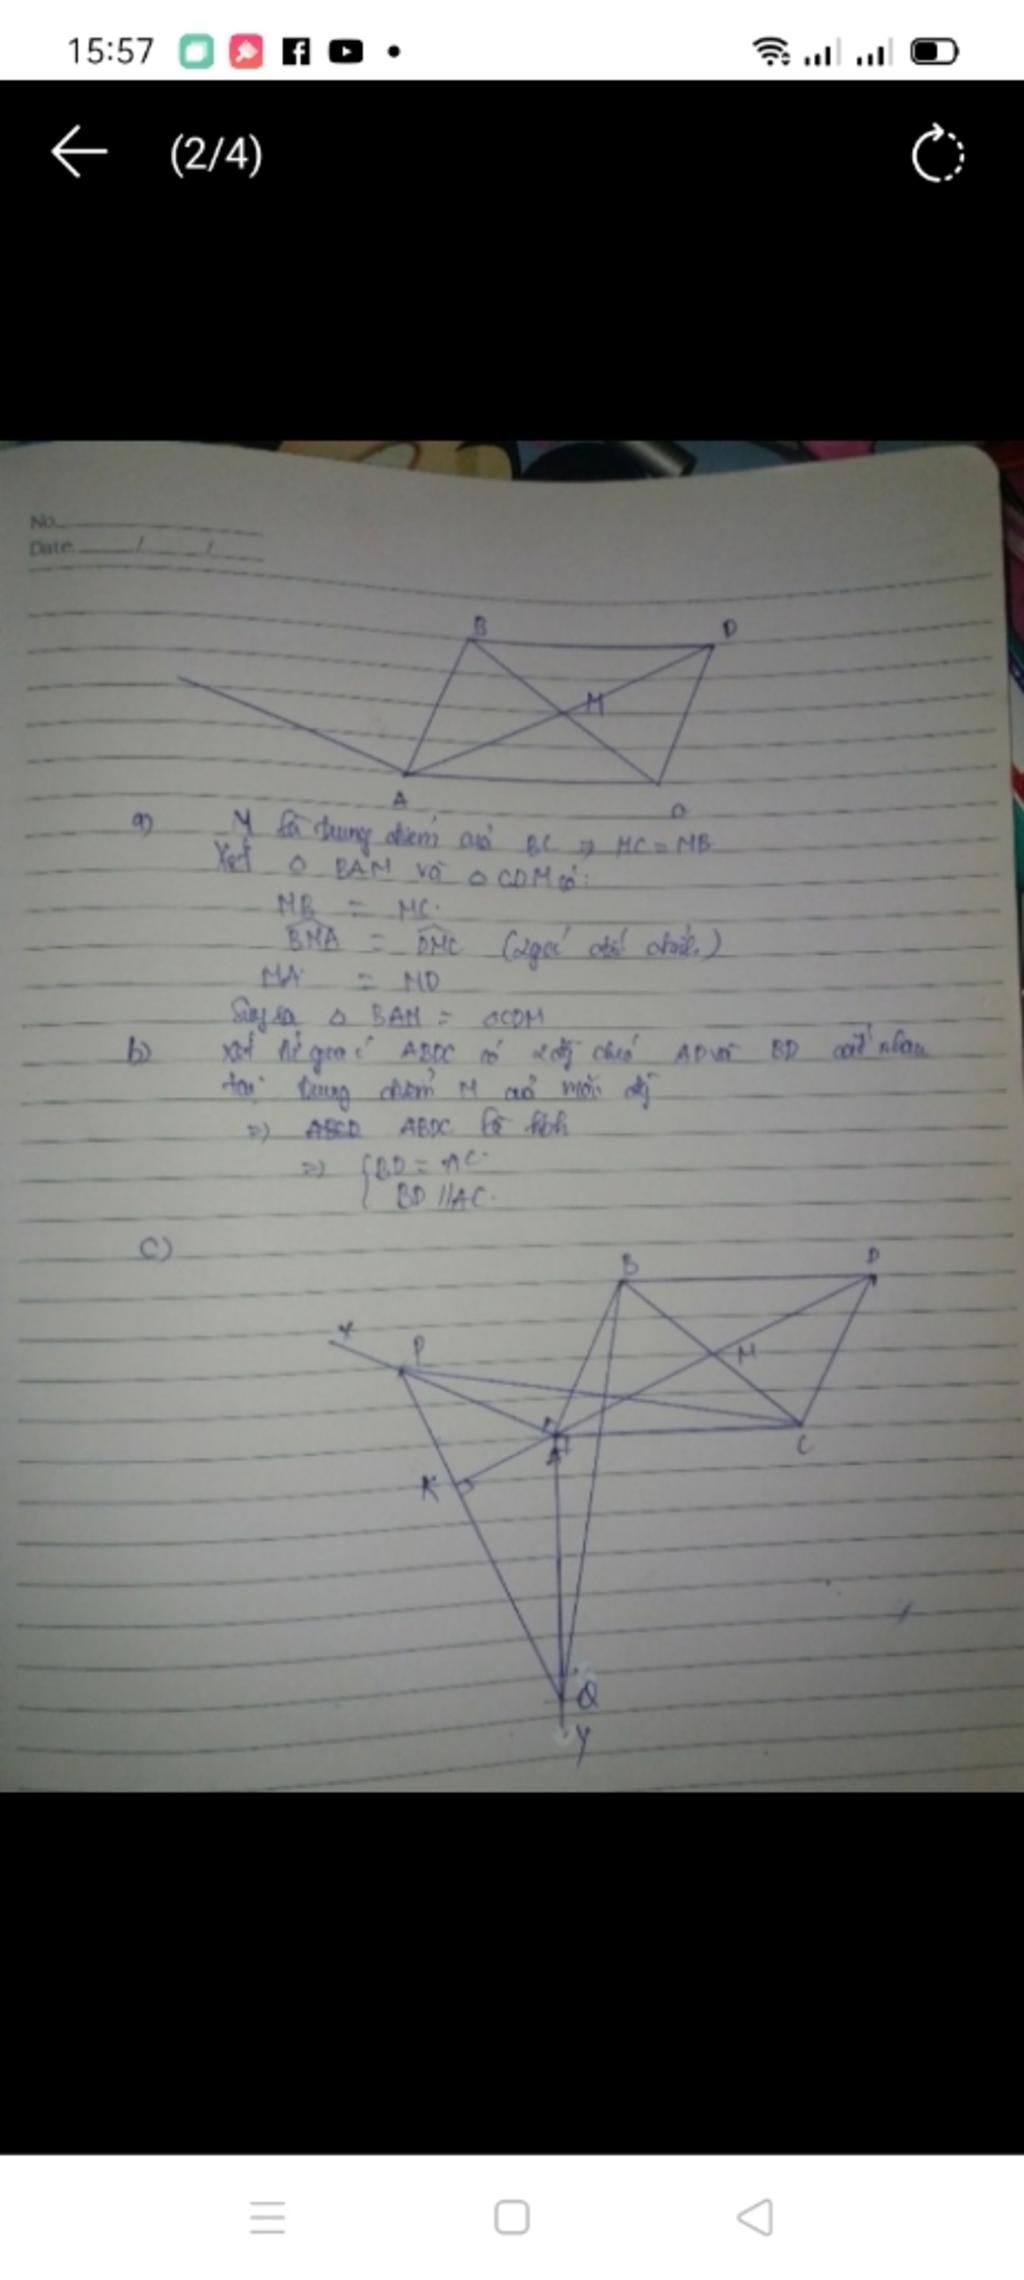 15:57
(2/4)
No
Date / /
B D
M
A
a) M là trung điểm của BC => MC = MB
Xét △ BAM và △ CDM có:
MB = MC.
BMA = DMC (2 góc đối đỉnh)
MA = MD
Suy ra △ BAM = △CDM
b) Xét tứ giác ABDC có 2 đg chéo AD và BD cắt nhau
tại trung điểm M của mỗi đg
=> ABCD ABDC là hbh
=> BD = AC.
BD // AC.
c)
B D
x P
M
A
C
K
Q
y